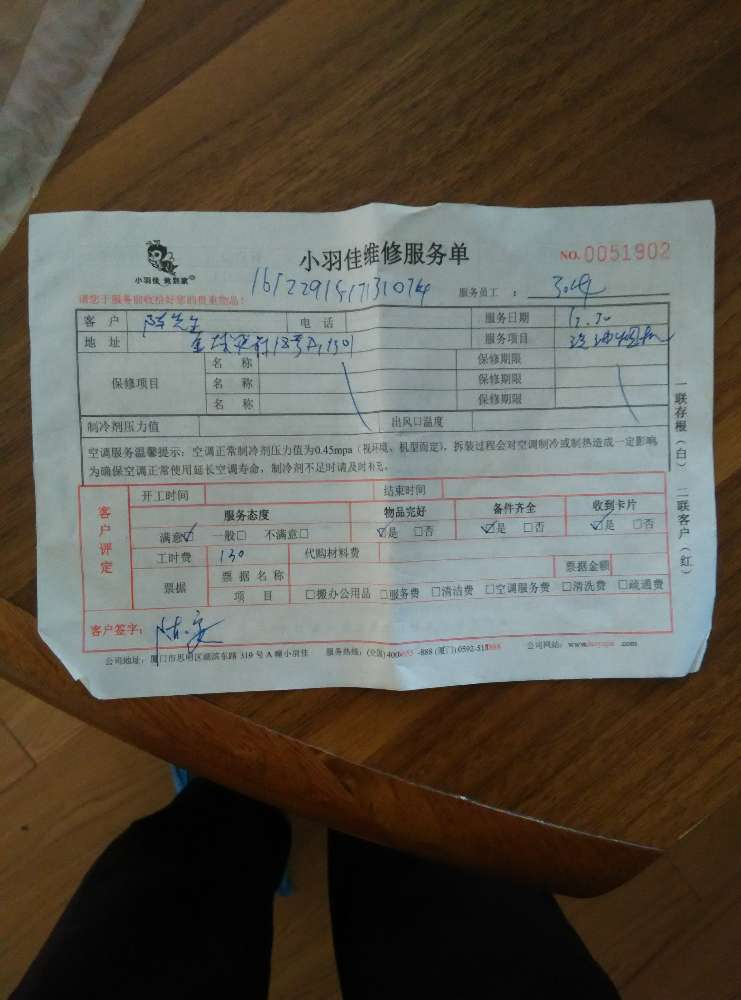 小羽佳维修服务单
NO.0051902
小羽佳 跑到家®
请您于服务前收拾好您的贵重物品！
服务员工：
客户 陈先生 电话 服务日期
地址 服务项目
保修项目 名称 保修期限
名称 保修期限
名称 保修期限
制冷剂压力值 出风口温度
空调服务温馨提示：空调正常制冷剂压力值为0.45mpa（视环境、机型而定），拆装过程会对空调制冷或制热造成一定影响
为确保空调正常使用延长空调寿命，制冷剂不足时请及时补充。
一联存根（白） 二联客户（红）
客户评定
开工时间 结束时间
服务态度 物品完好 备件齐全 收到卡片
满意☑ 一般□ 不满意□ ☑是 □否 ☑是 □否 ☑是 □否
工时费 130 代购材料费
票据 票据名称 票据金额
项目 □搬办公用品 □服务费 □清洁费 □空调服务费 □清洗费 □疏通费
客户签字：
公司地址：厦门市思明区湖滨东路 319 号 A 幢小羽佳 服务热线：(全国) (厦门) 公司网站：